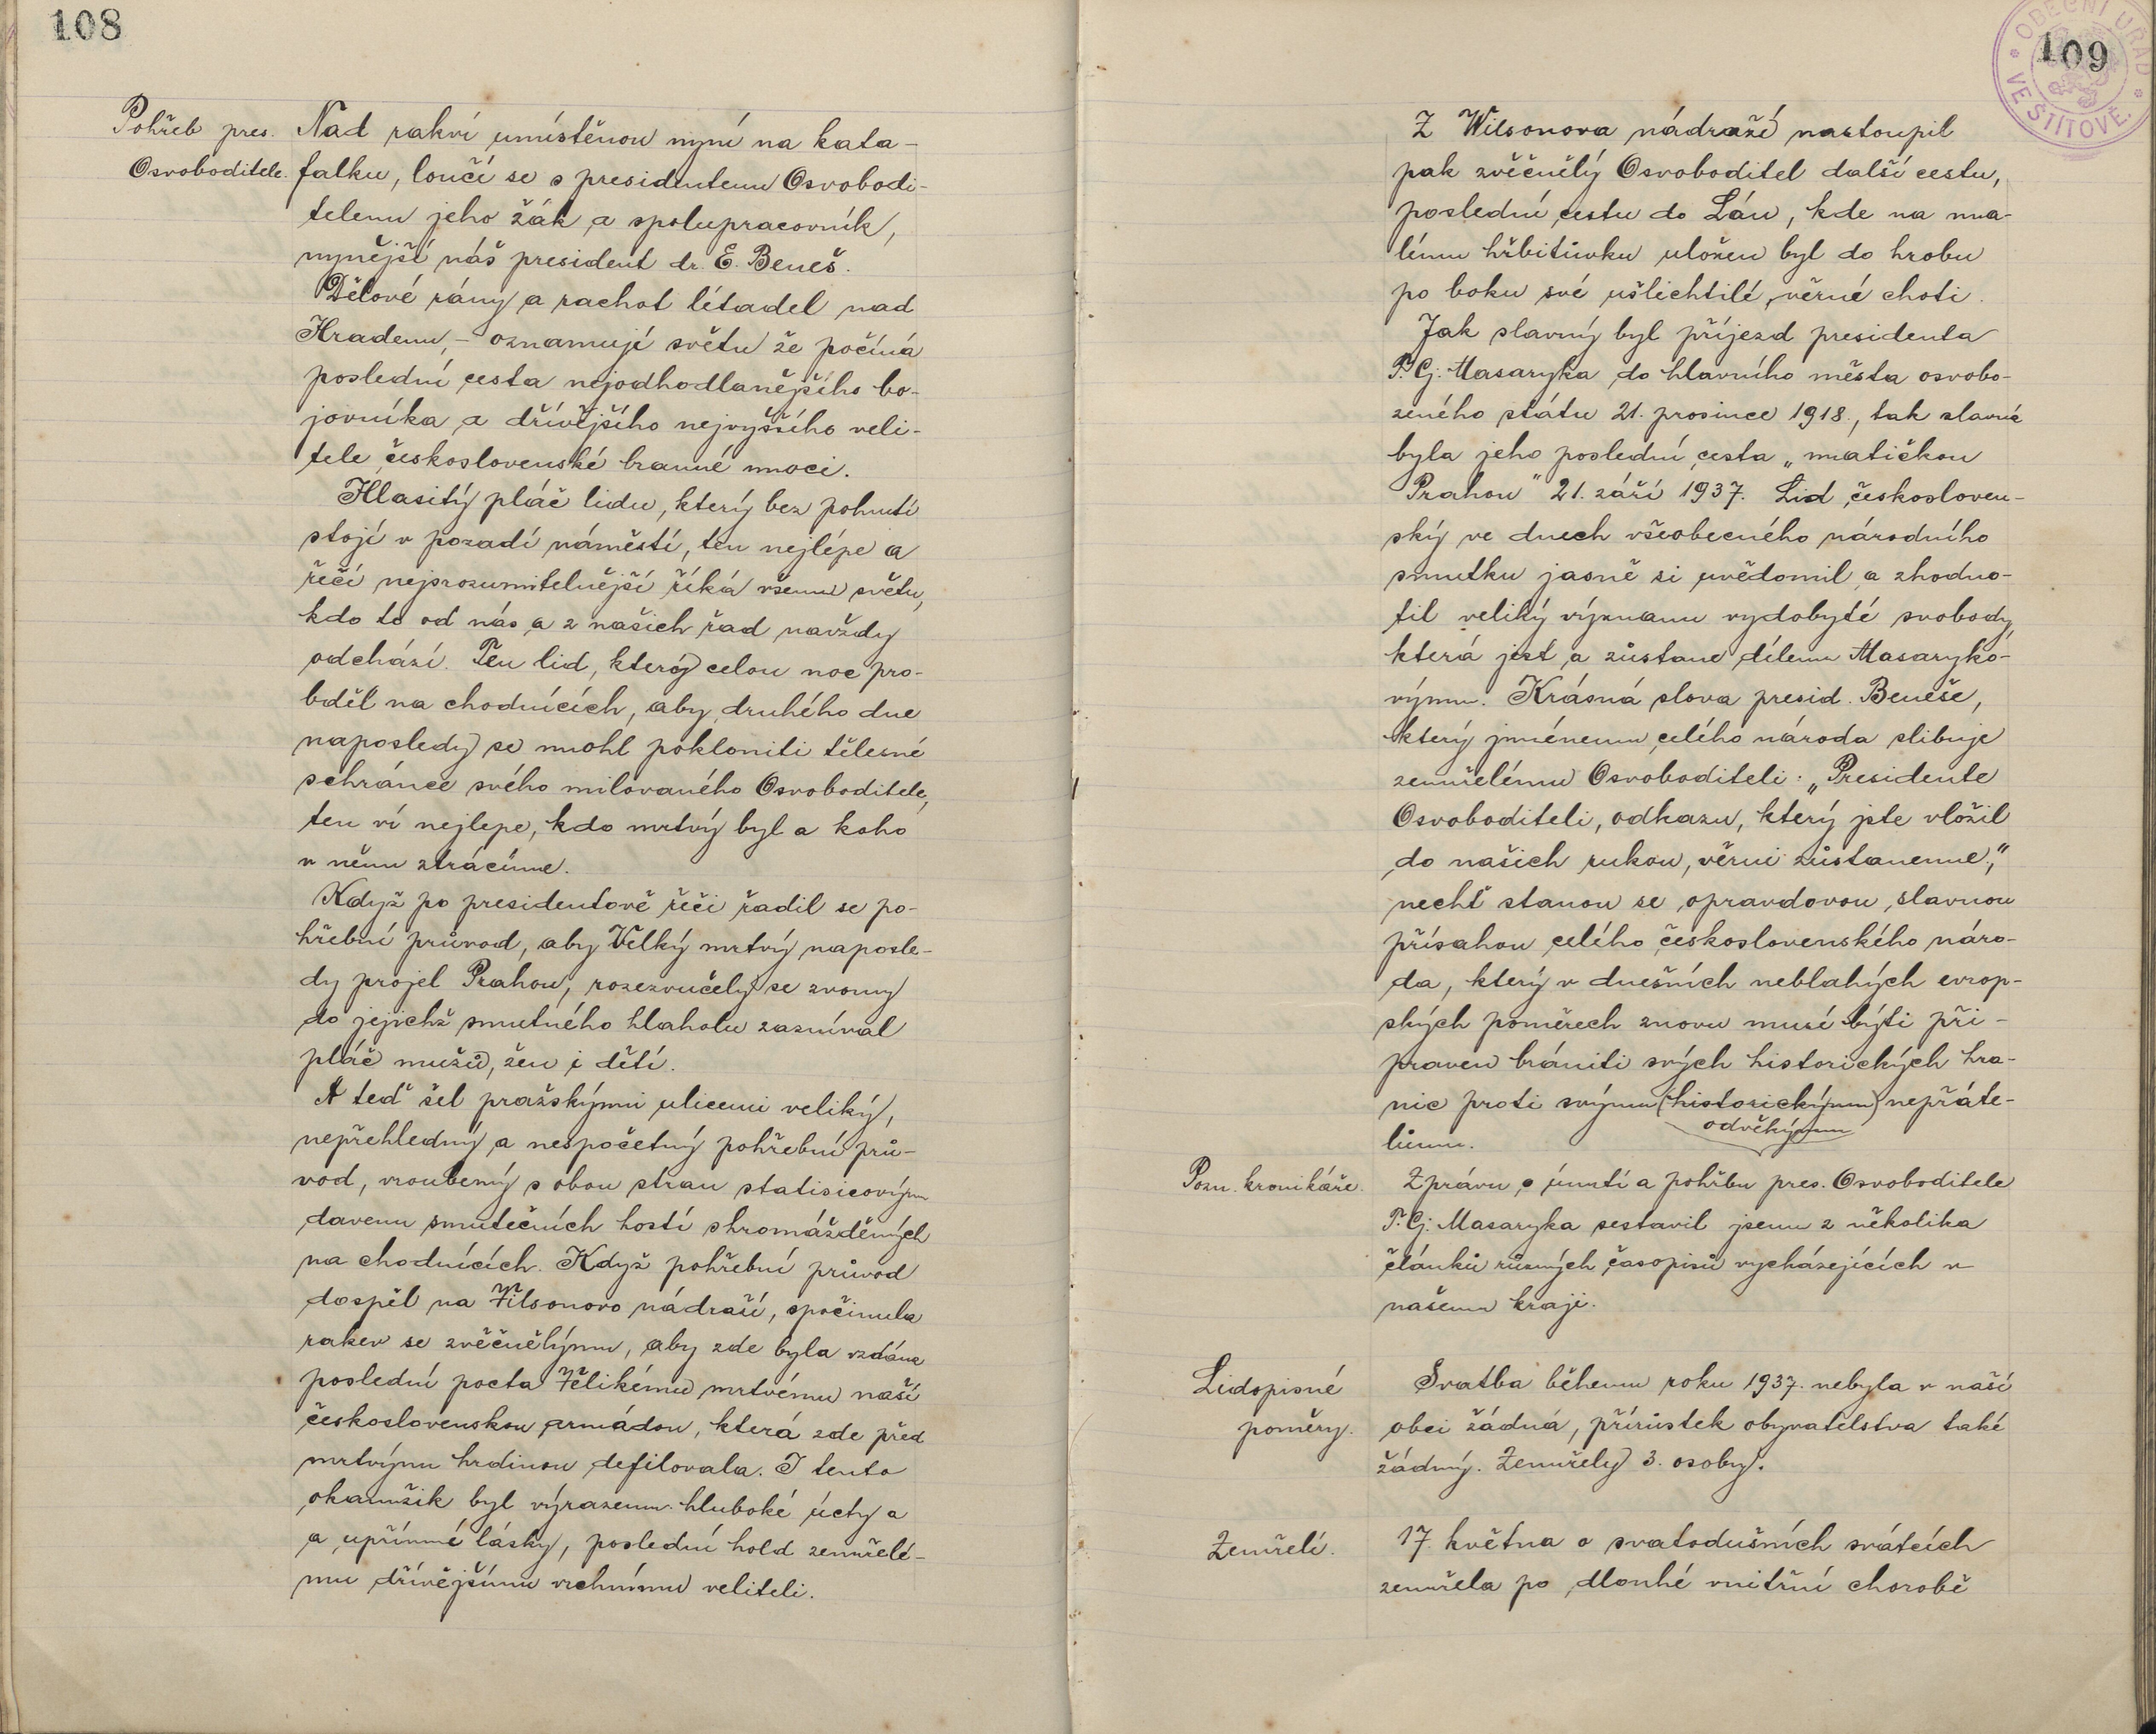 108
Pohřeb pres.
Osvoboditele.
Nad rakví umístěnou nyní na kata-
falku, loučí se s presidentem Osvobodi-
telem jeho žák a spolupracovník,
nynější náš president dr. E. Beneš.
Dělové rány a rachot létadel nad
Hradem, – oznamují světu že počíná
poslední cesta nejodhodlanějšího bo-
jovníka a dřívějšího nejvyššího veli-
tele československé branné moci.
Hlasitý pláč lidu, který bez pohnutí
stojí v pozadí náměstí, ten nejlépe a
řečí nejsrozumitelnější říká všemu světu,
kdo to od nás a z našich řad navždy
odchází. Ten lid, který celou noc pro-
bděl na chodnících, aby druhého dne
naposledy se mohl pokloniti tělesné
schránce svého milovaného Osvoboditele,
ten ví nejlepe, kdo mrtvý byl a koho
v něm ztrácíme.
Když po presidentově řeči řadil se po-
hřební průvod, aby Velký mrtvý naposle-
dy projel Prahou, rozezvučely se zvony
do jejichž smutného hlaholu zazníval
pláč mužů, žen i dětí.
A teď šel pražskými ulicemi veliký,
nepřehledný a nespočetný pohřební prů-
vod, vroubený s obou stran statisicovým
davem smutečních hostí shromážděných
na chodnících. Když pohřební průvod
dospěl na Vilsonovo nádraší, spočinula
rakev se zvěčnělým, aby zde byla vzdána
poslední pocta Vělikému mrtvému naší
československou armádou, která zde před
mrtvým hrdinou defilovala. I tento
okamžik byl výrazem hluboké úcty a
a upřímné lásky, poslední hold zemřelé-
mu dřívějšímu vrchnímu veliteli.
109
OBECNÍ ÚŘAD
VE ŠTÍTOVĚ.
Z Wilsonova nádraží nastoupil
pak zvěčnělý Osvoboditel další cestu,
poslední cestu do Lán, kde na ma-
lém hřbitůvku uložen byl do hrobu
po boku své ušlechtilé, věrné choti.
Jak slavný byl příjezd presidenta
T. G. Masaryka do hlavního města osvobo-
zeného státu 21. prosince 1918., tak slavná
byla jeho poslední cesta „matičkou
Prahou" 21. září 1937. Lid českosloven-
ský ve dnech všeobecného národního
smutku jasně si uvědomil a zhodno-
til veliký význam vydobyté svobody,
která jest a zůstane dílem Masaryko-
vým. Krásná slova presid. Beneše,
který jménem celého národa slibuje
zemřelému Osvoboditeli: „Presidente
Osvoboditeli, odkazu, který jste vložil
do našich rukou, věrni zůstaneme,"
nechť stanou se opravdovou, slavnou
přísahou celého československého náro-
da, který v dnešních neblahých evrop-
ských poměrech znovu musí býti při-
praven brániti svých historických hra-
nic proti svým (historickým) nepřáte-
odvěkým
lům.
Pozn. kronikáře.
Zprávu o úmtí a pohřbu pres. Osvoboditele
T. G. Masaryka sestavil jsem z několika
článků různých časopisů vycházejících v
našem kraji.
Lidopisné
poměry.
Svatba během roku 1937. nebyla v naší
obci žádná, přírůstek obyvatelstva také
žádný. Zemřely 3. osoby.
Zemřelí.
17. května o svatodušních svátcích
zemřela po dlouhé vnitřní chorobě